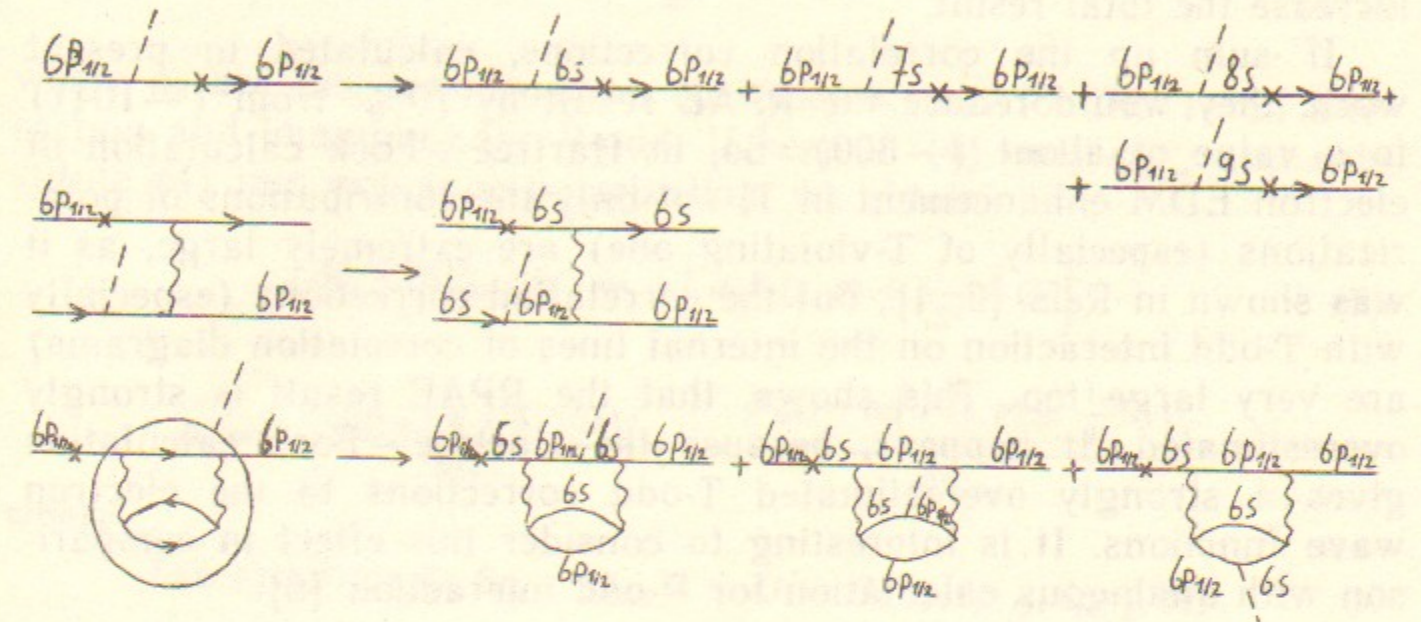 6P1/2 6P1/2 6P1/2 6s 6P1/2 + 6P1/2 7s 6P1/2 + 6P1/2 8s 6P1/2 +
+ 6P1/2 9s 6P1/2
6P1/2 6P1/2 6s 6s
6P1/2 6s 6P1/2 6P1/2
6P1/2 6P1/2 6P1/2 6s 6P1/2 6s 6P1/2 + 6P1/2 6s 6P1/2 6P1/2 + 6P1/2 6s 6P1/2 6P1/2
6s 6s 6P1/2 6s
6P1/2 6P1/2 6P1/2 6s